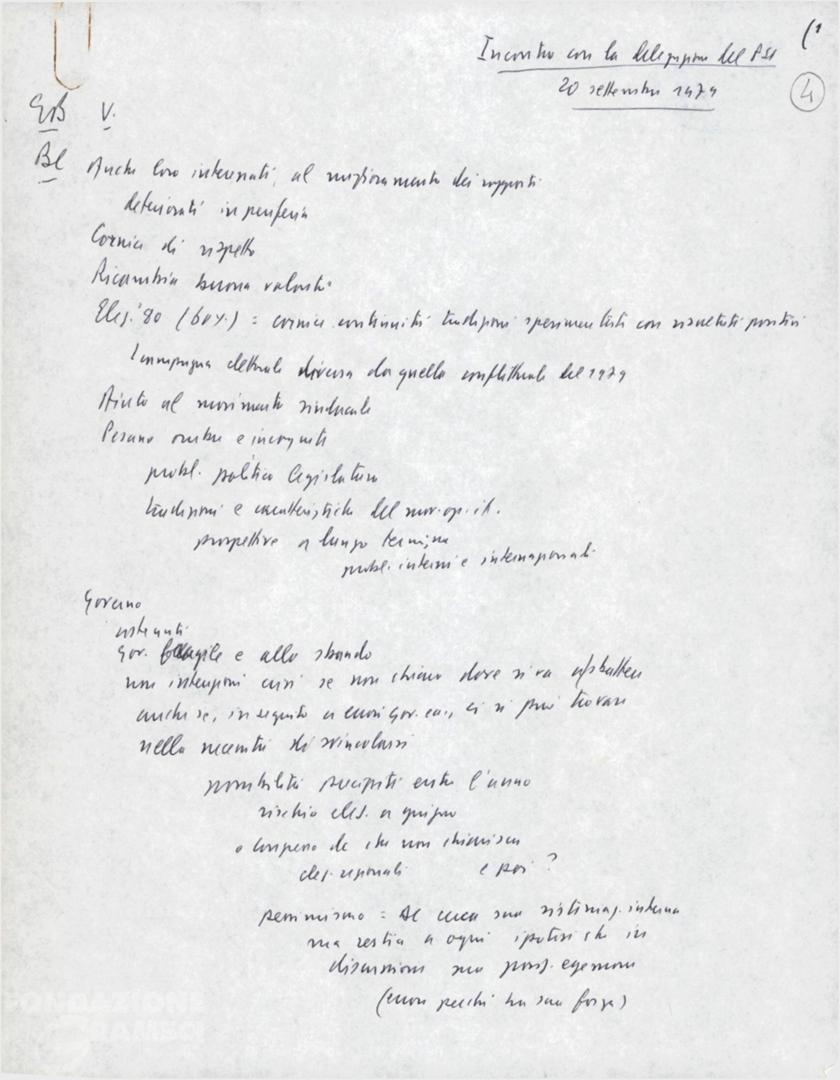 (1
Incontro con la delegazione del PSI
20 settembre 1979
4
EnB V.
Bl Anche loro interessati, al miglioramento dei rapporti
deteriorati in periferia
Cornice di rispetto
Ricambia buona volontà
Elez. '80 (60%) = cornice continuità tradizioni sperimentati con risultati positivi
campagna elettorale diversa da quella conflittuale del 1979
Aiuto al movimento sindacale
Pesano ombre e incognite
probl. politico legislatura
tradizioni e caratteristiche del mov. op. it.
prospettive a lungo termine
probl. interni e internazionali
Governo
astenuti
Gov. fragile e allo sbando
non intenzioni crisi se non chiaro dove si va a sbattere
anche se, in seguito a errori gov. ecc., ci si può trovare
nella necessità di svincolarsi
possibilità precipiti entro l'anno
rischio elez. a giugno
o congresso dc che non chiarisca
elez. regionali e poi?
pessimismo = DC cerca sua sistemaz. interna
ma restia a ogni ipotesi che in
discussione sua posiz. egemone
(errori perché ha sua forza)
FONDAZIONE
GRAMSCI